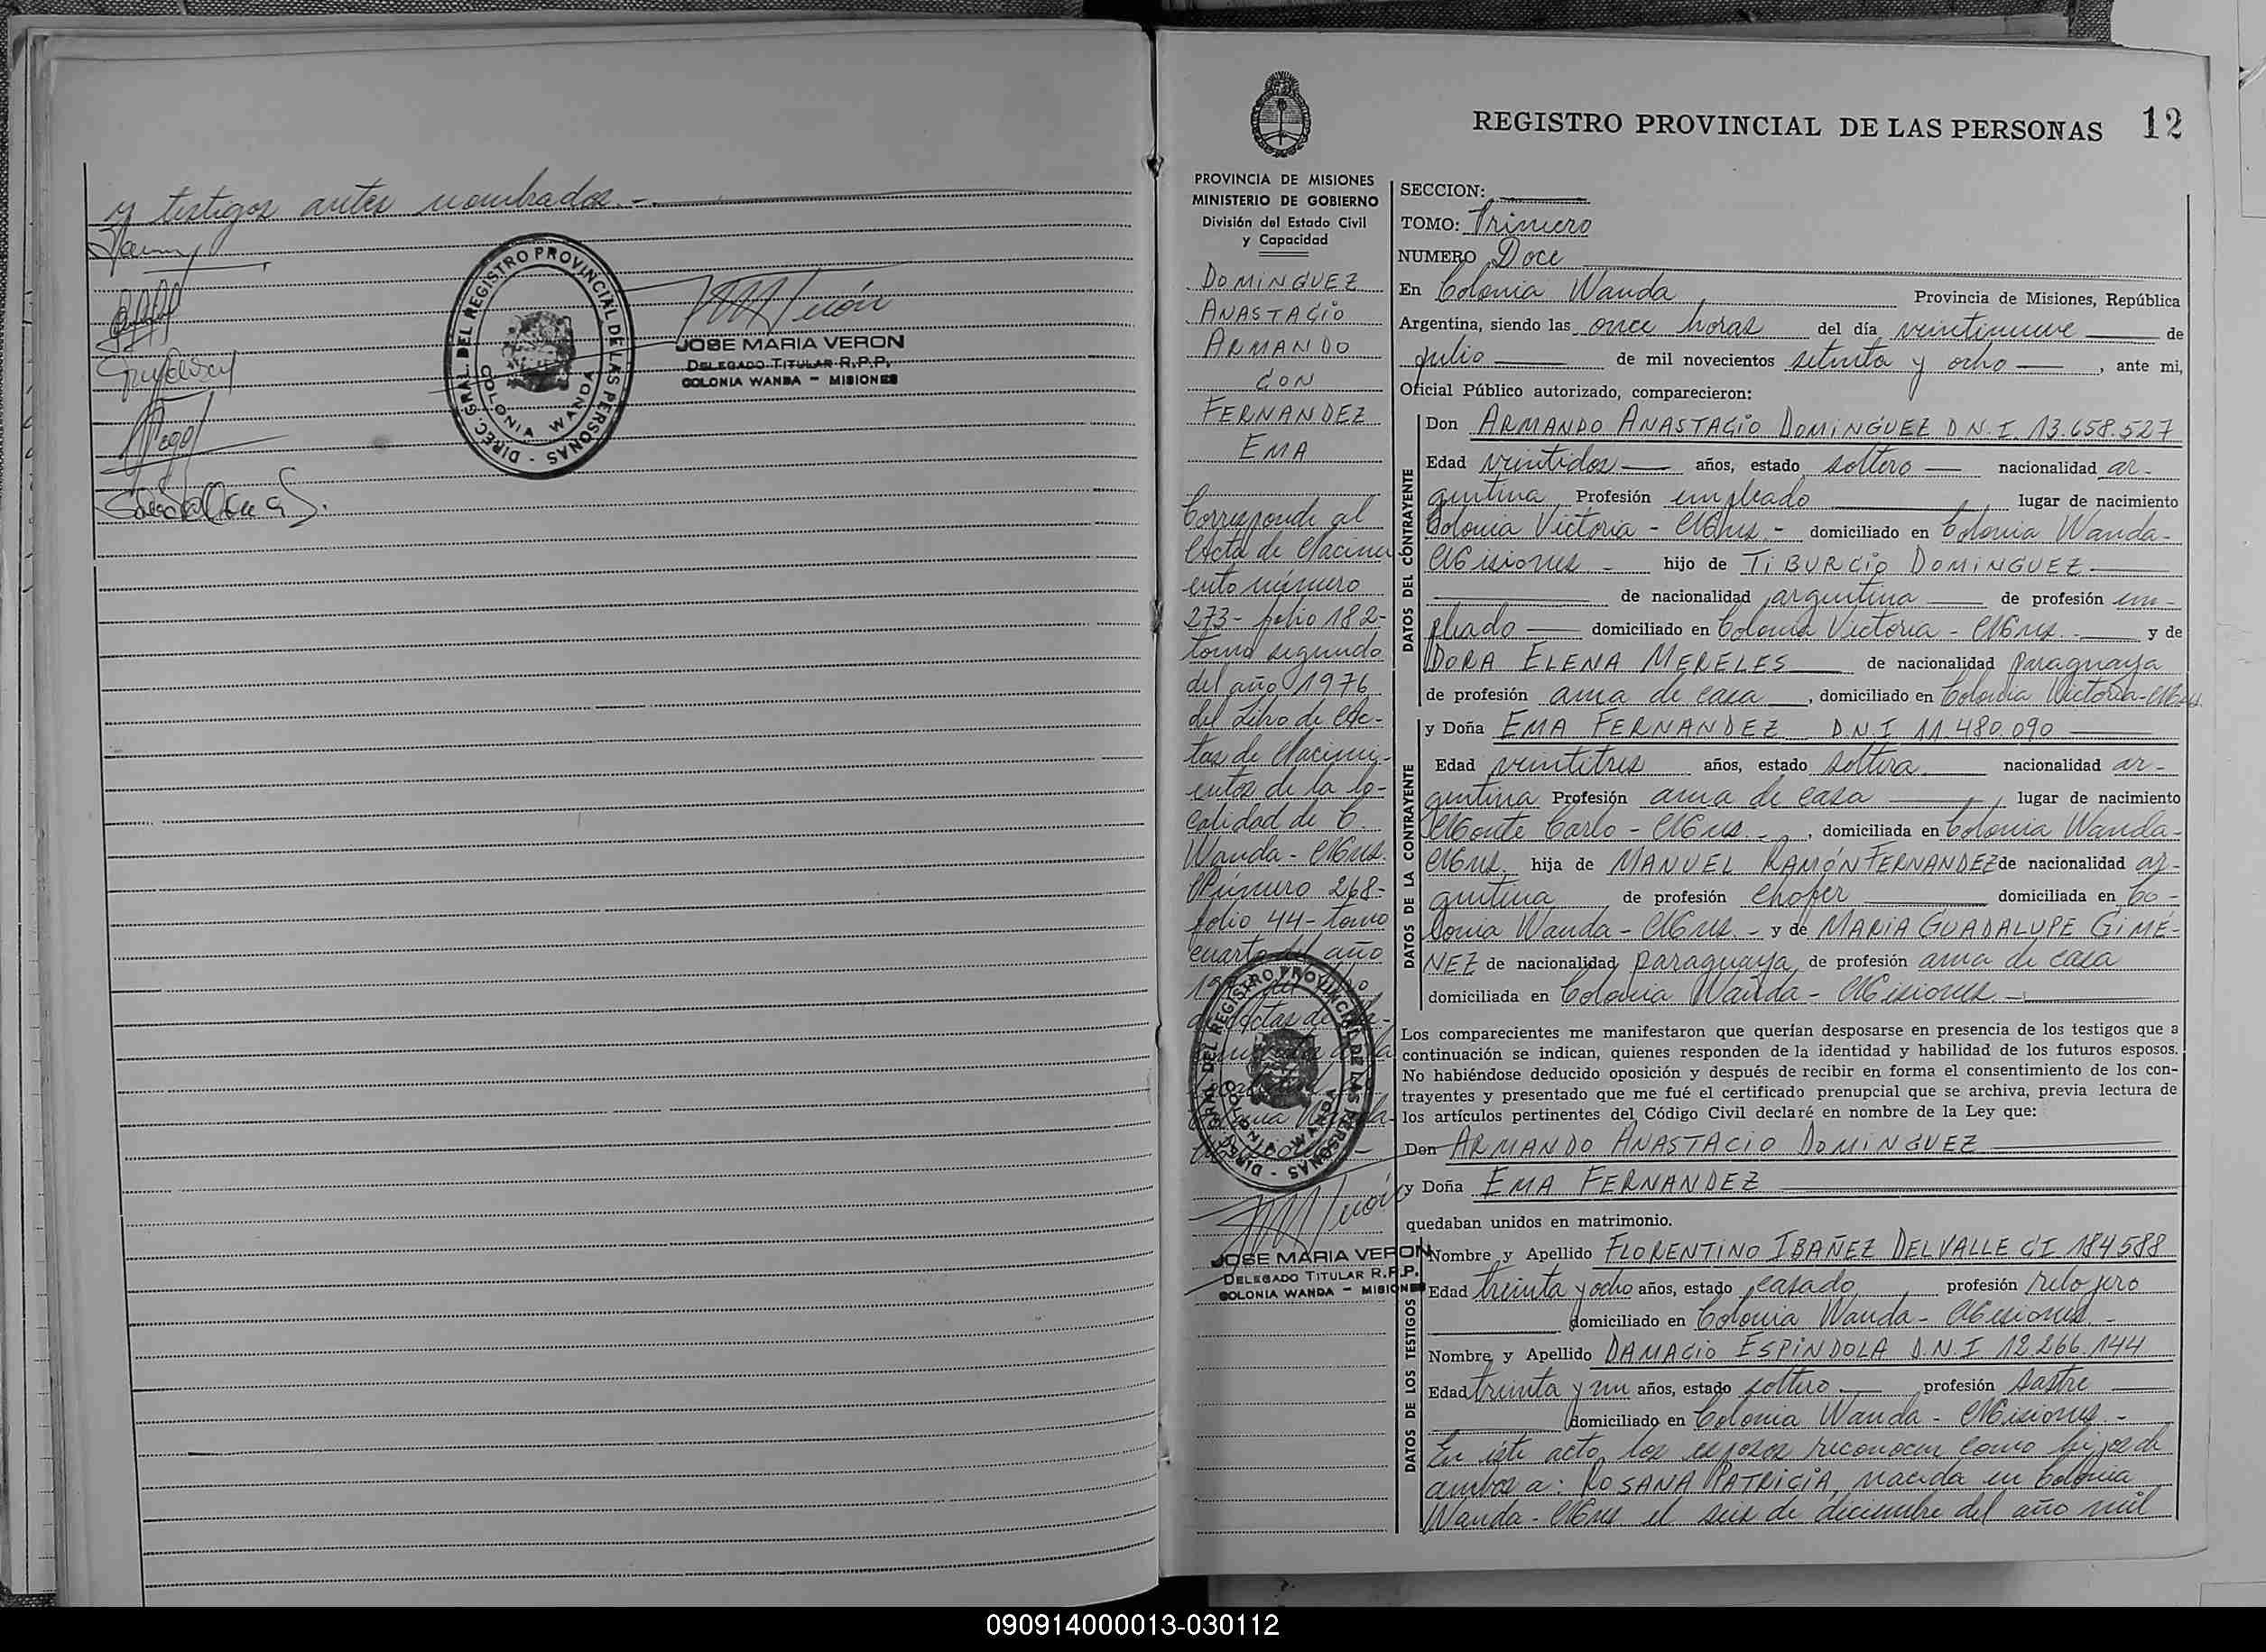 y testigos antes nombrados.-
DIREC. GRAL. DEL REGISTRO PROVINCIAL DE LAS PERSONAS -
COLONIA WANDA
JOSE MARIA VERON
DELEGADO TITULAR R.P.P.
COLONIA WANDA - MISIONES
REGISTRO PROVINCIAL DE LAS PERSONAS 12
PROVINCIA DE MISIONES
MINISTERIO DE GOBIERNO
División del Estado Civil
y Capacidad
DOMINGUEZ
ANASTACIO
ARMANDO
CON
FERNANDEZ
EMA
Corresponde al
Acta de Nacimi
ento número
273- folio 182-
tomo segundo
del año 1976
del Libro de Ac-
tas de Nacimi-
entos de la lo-
calidad de C.
Wanda - Mnes.
Número 268-
folio 44- tomo
cuarto del año
DIREC. GRAL. DEL REGISTRO PROVINCIAL DE LAS PERSONAS -
COLONIA WANDA
JOSE MARIA VERON
DELEGADO TITULAR R.P.P.
COLONIA WANDA - MISIONES
SECCION:
TOMO: Primero
NUMERO Doce
En Colonia Wanda Provincia de Misiones, República
Argentina, siendo las once horas del día veintinueve de
julio de mil novecientos setenta y ocho , ante mi,
Oficial Público autorizado, comparecieron:
DATOS DEL CONTRAYENTE
Don ARMANDO ANASTACIO DOMINGUEZ D.N.I. 13.658.527
Edad veintidos años, estado soltero nacionalidad ar-
gentina Profesión empleado lugar de nacimiento
Colonia Victoria - Mnes. - domiciliado en Colonia Wanda-
Misiones - hijo de TIBURCIO DOMINGUEZ
de nacionalidad argentina de profesión em-
pleado domiciliado en Colonia Victoria - Mnes. - y de
DORA ELENA MERELES de nacionalidad paraguaya
de profesión ama de casa , domiciliado en Colonia Victoria-Mnes
DATOS DE LA CONTRAYENTE
y Doña EMA FERNANDEZ D.N.I 11.480.090
Edad veintitres años, estado soltera nacionalidad ar-
gentina Profesión ama de casa , lugar de nacimiento
Monte Carlo - Mnes. - , domiciliada en Colonia Wanda-
Mnes. hija de MANUEL RAMÓN FERNANDEZ de nacionalidad ar-
gentina de profesión chofer domiciliada en Co-
lonia Wanda - Mnes. - y de MARIA GUADALUPE GIMÉ-
NEZ de nacionalidad paraguaya de profesión ama de casa
domiciliada en Colonia Wanda - Misiones -
Los comparecientes me manifestaron que querían desposarse en presencia de los testigos que a
continuación se indican, quienes responden de la identidad y habilidad de los futuros esposos.
No habiéndose deducido oposición y después de recibir en forma el consentimiento de los con-
trayentes y presentado que me fué el certificado prenupcial que se archiva, previa lectura de
los artículos pertinentes del Código Civil declaré en nombre de la Ley que:
Don ARMANDO ANASTACIO DOMINGUEZ
y Doña EMA FERNANDEZ
quedaban unidos en matrimonio.
DATOS DE LOS TESTIGOS
Nombre y Apellido FLORENTINO IBAÑEZ DELVALLE CI 184588
Edad treinta y ocho años, estado casado profesión relojero
domiciliado en Colonia Wanda - Misiones. -
Nombre y Apellido DAMACIO ESPINDOLA D.N.I 12.266.144
Edad treinta y un años, estado soltero profesión sastre
domiciliado en Colonia Wanda - Misiones. -
En éste acto los esposos reconocen como hijos de
ambos a: ROSANA PATRICIA, nacida en Colonia
Wanda - Mnes el seis de diciembre del año mil
090914000013-030112